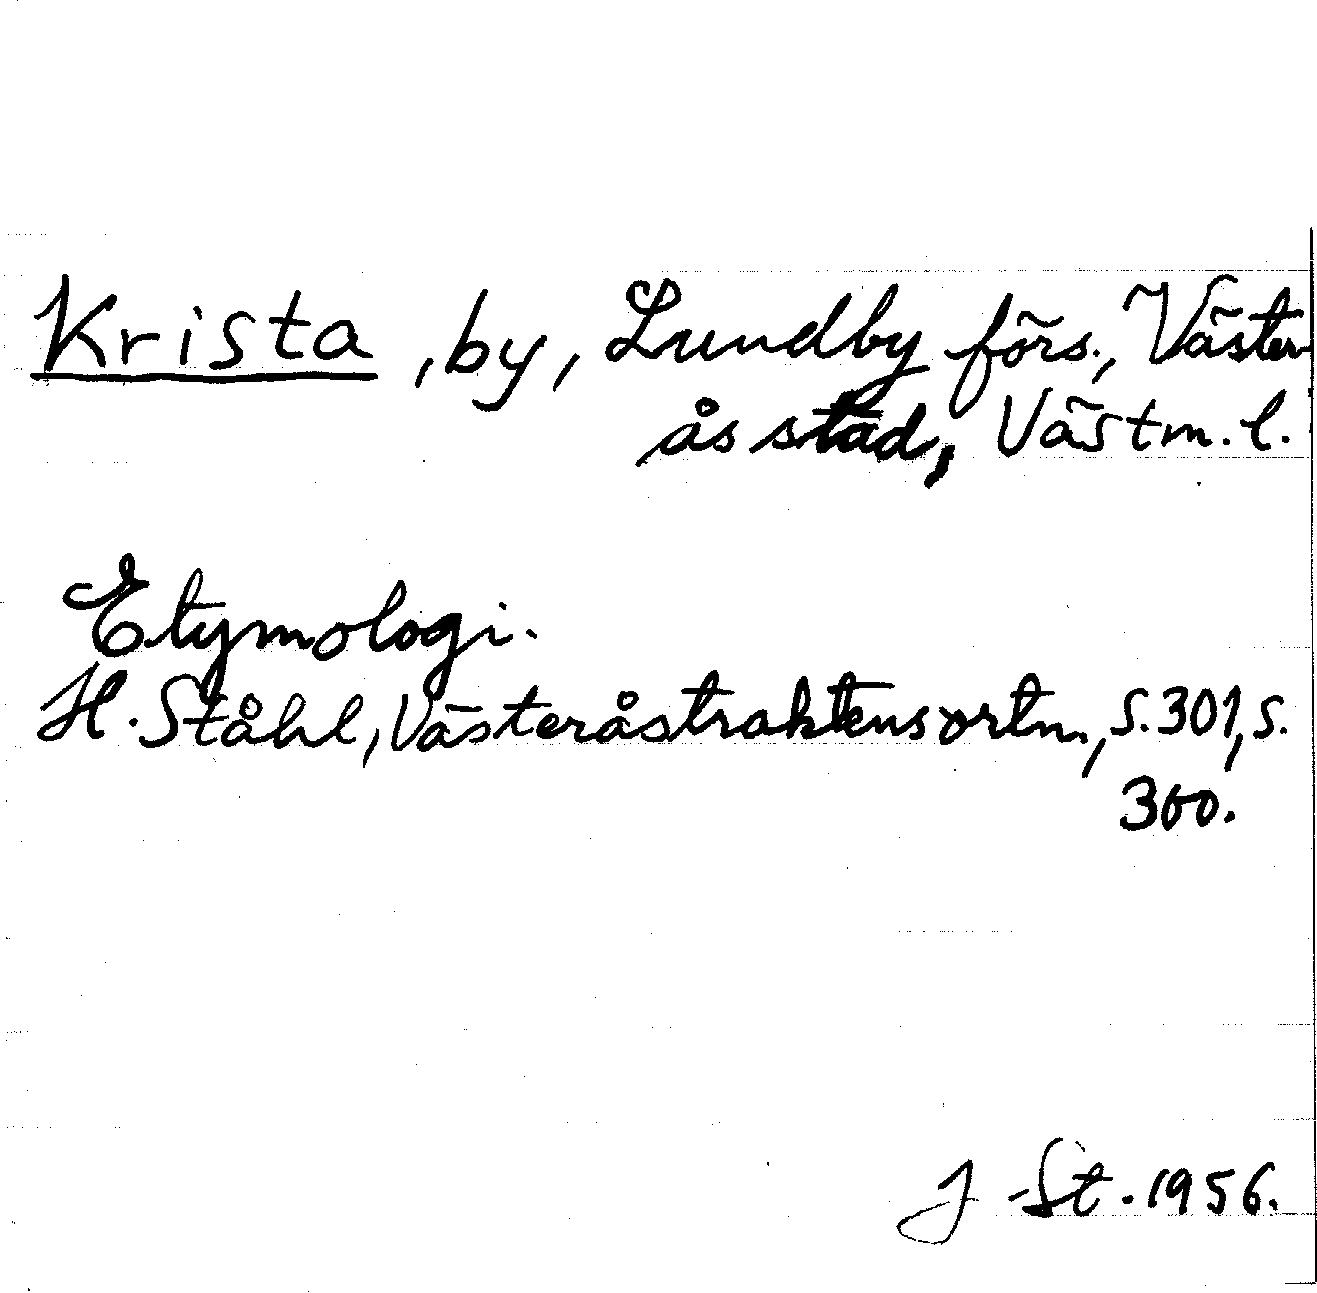 Krista, by, Lundby förs., Väster
ås stad, Västm. l.
Etymologi.
H. Ståhl, Västeråstraktens ortn., s. 301, s.
300.
J St. 1956.